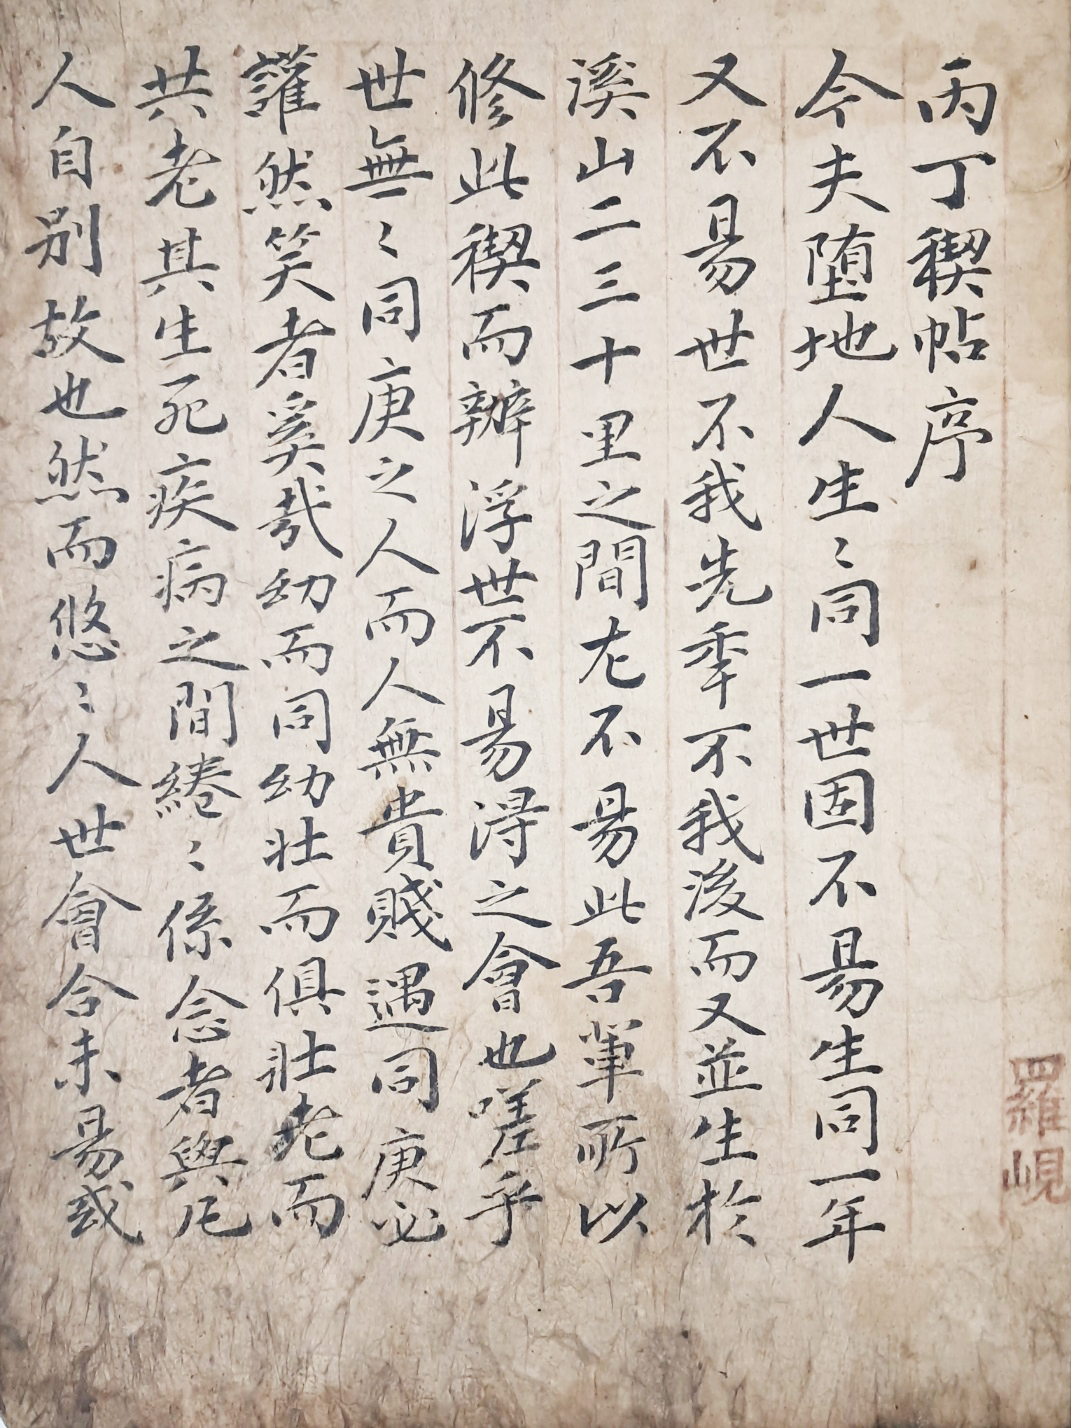 丙丁稧帖序
今夫堕地人生〻同一世固不易生同一年
又不易世不我先季不我後而又並生於
溪山二三十里之間尤不易此吾軰所以
修此稧而辦浮世不易淂之會也嗟乎
世無〻同庚之人而人無貴賤遇同庚必
讙然笑者奚㢤幼而同幼壮而俱壮老而
共老其生死疾病之間綣〻係念者與凡
人自别故也然而悠〻人世會合未易或
羅峴